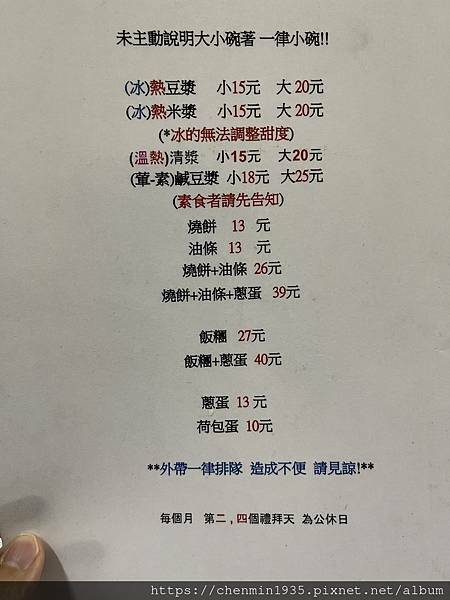 未主動說明大小碗著 一律小碗!!
(冰)熱豆漿 小15元 大 20元
(冰)熱米漿 小15元 大 20元
(*冰的無法調整甜度)
(溫熱)清漿 小15元 大20元
(葷-素)鹹豆漿 小18元 大25元
(素食者請先告知)
燒餅 13 元
油條 13 元
燒餅+油條 26元
燒餅+油條+蔥蛋 39元
飯糰 27元
飯糰+蔥蛋 40元
蔥蛋 13 元
荷包蛋 10元
**外帶一律排隊 造成不便 請見諒!**
每個月 第二,四個禮拜天 為公休日
https://chenmin1935.pixnet.net/album